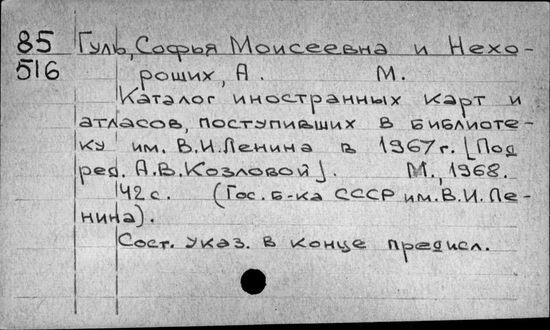 85 Гуль, Софья Моисеевна и Нехо-
516 роших, А. М.
Каталог иностранных карт и
атласов, поступивших в библиоте-
ку им. В.И.Ленина в 1967г. [Под
ред. А.В.Козловой]. М., 1968.
42 с. (Гос. б-ка СССР им. В.И. Ле-
нина).
Сост. указ. в конце предисл.